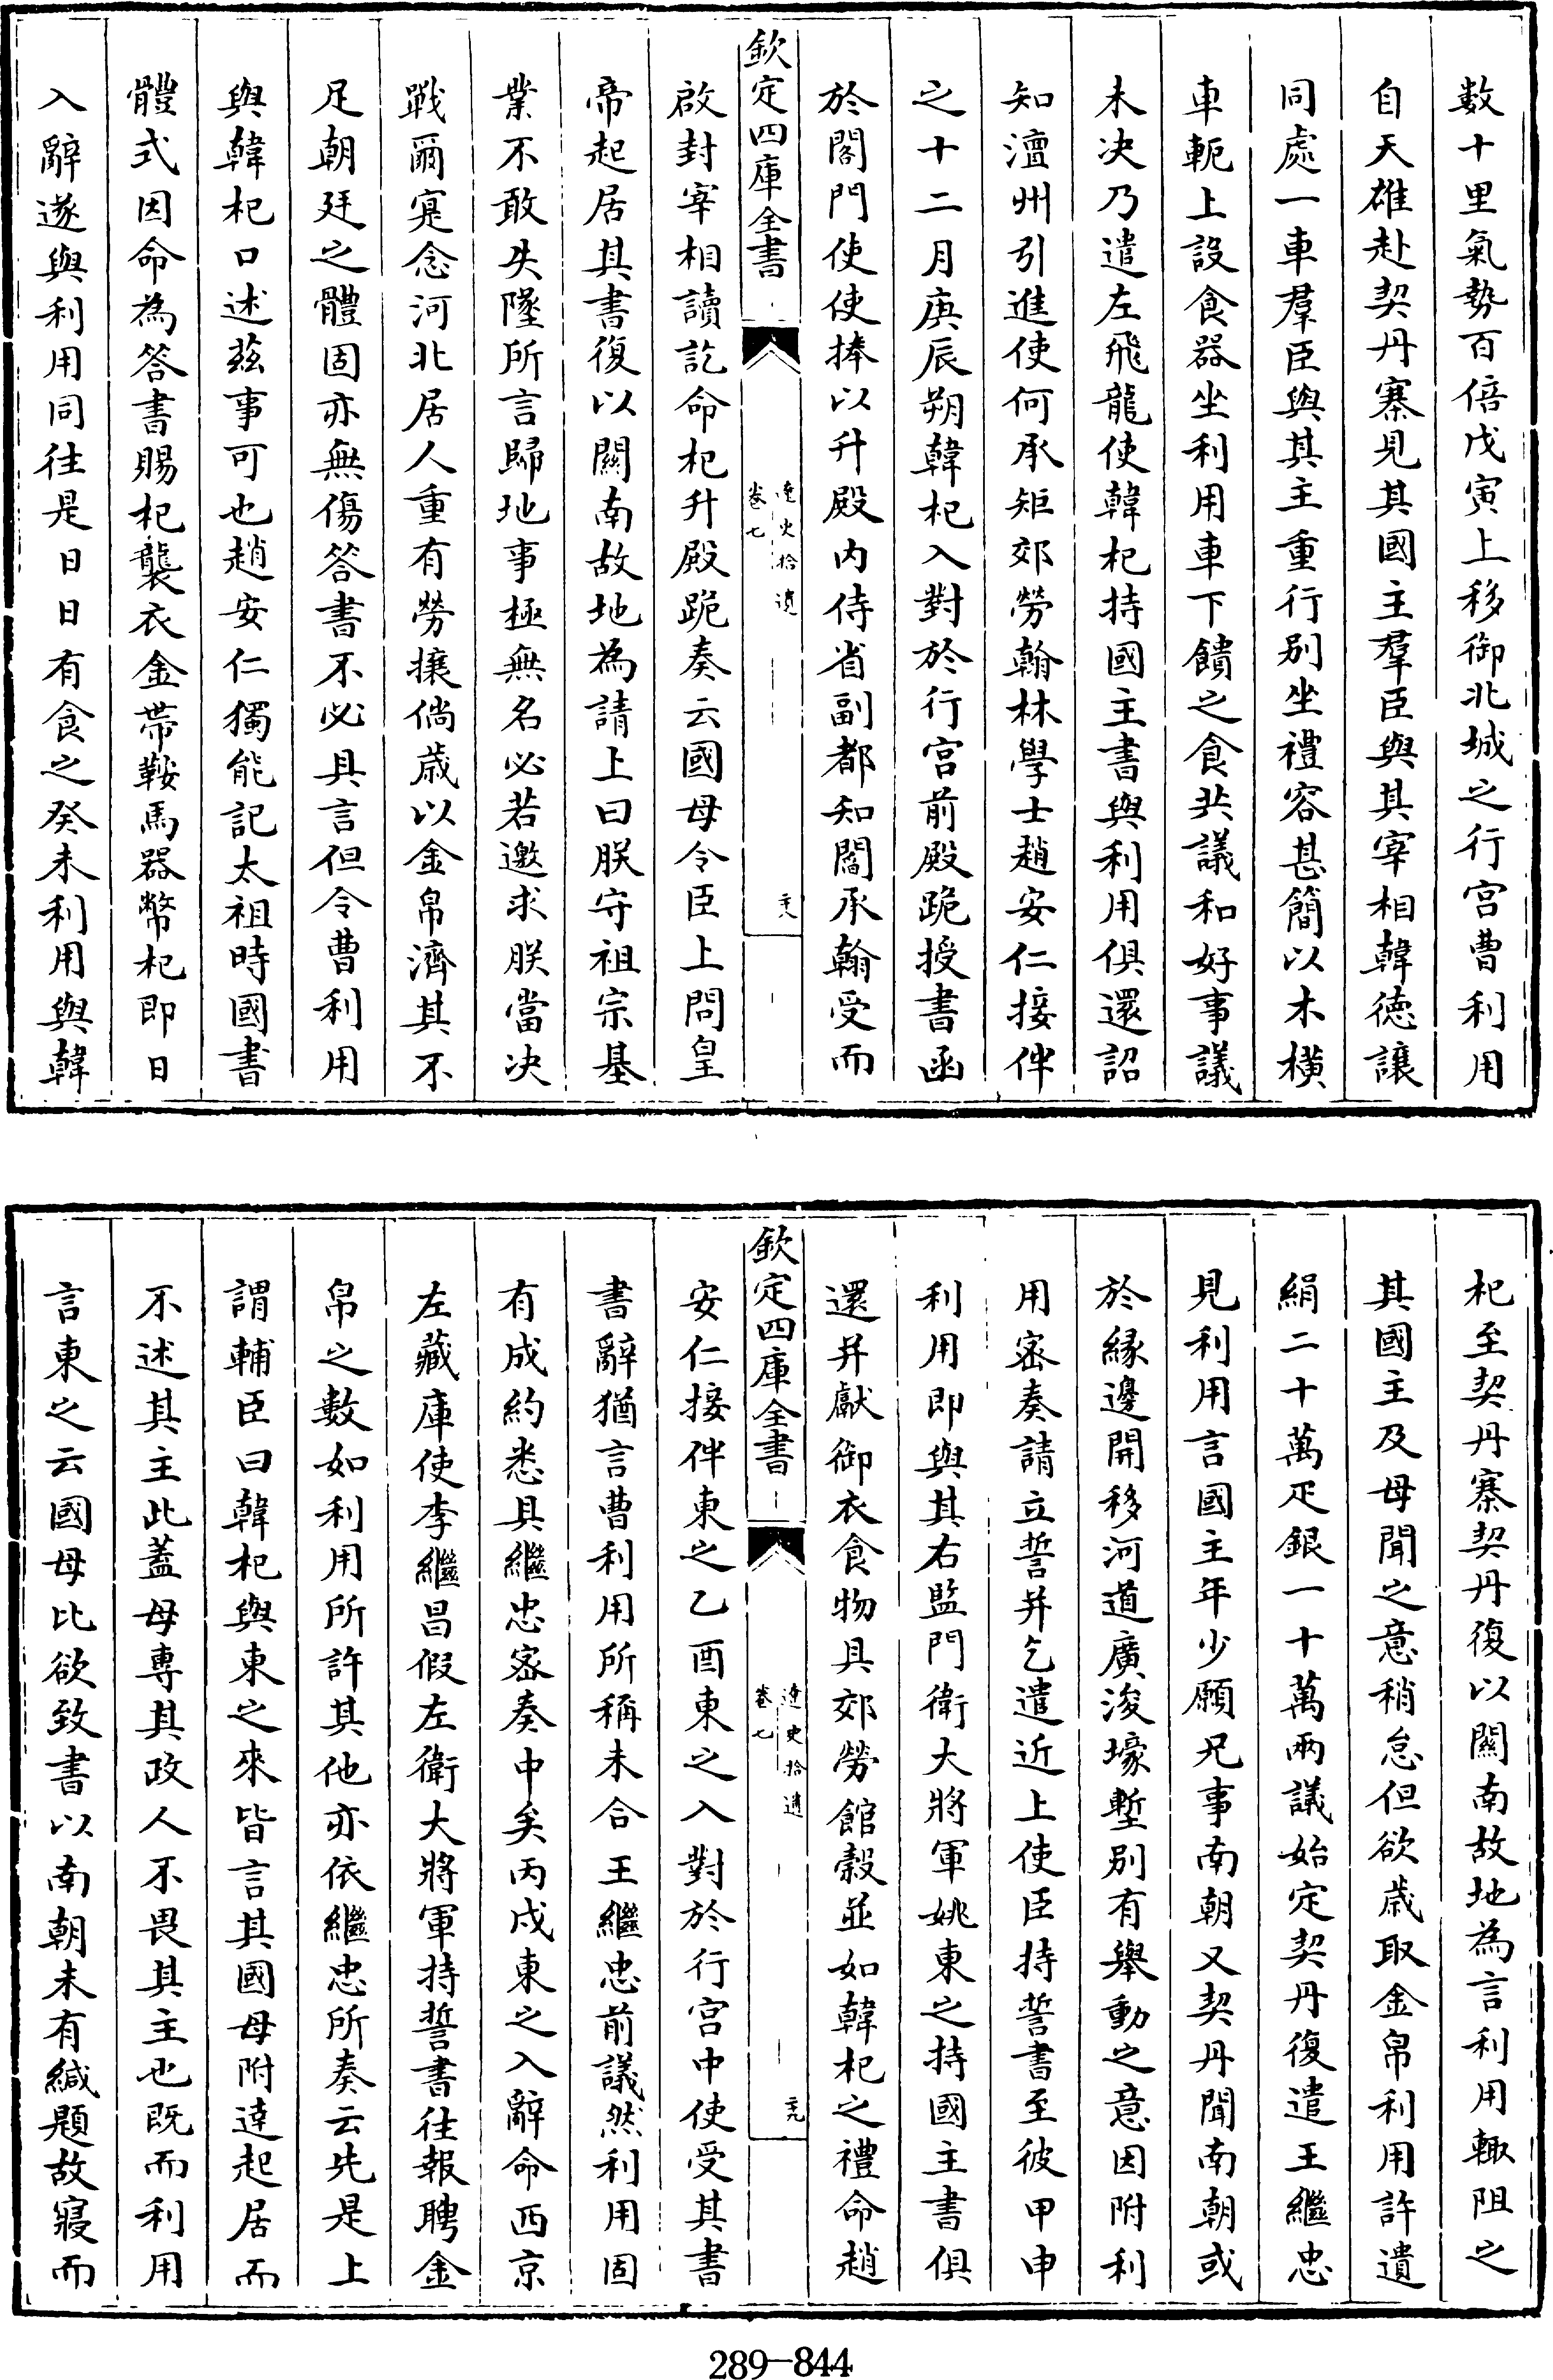 數十里氣勢百倍戊寅上移御北城之行宫曹利用
自天雄赴契丹寨見其國主羣臣與其宰相韓德讓
同處一車羣臣與其主重行别坐禮容甚簡以木横
車軛上設食器坐利用車下饋之食共議和好事議
未决乃遣左飛龍使韓杞持國主書與利用俱還詔
知澶州引進使何承矩郊勞翰林學士趙安仁接伴
之十二月庚辰朔韓杞入對於行宫前殿跪授書函
於閤門使使捧以升殿内侍省副都知閻承翰受而
欽定四庫全書
遼史拾遺
卷七
主八
啟封宰相讀訖命杞升殿跪奏云國母令臣上問皇
帝起居其書復以關南故地為請上曰朕守祖宗基
業不敢失墜所言歸地事極無名必若邀求朕當决
戰爾寔念河北居人重有勞擾倘歲以金帛濟其不
足朝廷之體固亦無傷答書不必具言但令曹利用
與韓杞口述兹事可也趙安仁獨能記太祖時國書
體式因命為答書賜杞襲衣金帶鞍馬器幣杞即日
入辭遂與利用同往是日日有食之癸未利用與韓
杞至契丹寨契丹復以關南故地為言利用輙阻之
其國主及母聞之意稍怠但欲歲取金帛利用許遺
絹二十萬疋銀一十萬兩議始定契丹復遣王繼忠
見利用言國主年少願兄事南朝又契丹聞南朝或
於縁邊開移河道廣浚壕塹别有舉動之意因附利
用密奏請立誓并乞遣近上使臣持誓書至彼甲申
利用即與其右監門衛大將軍姚東之持國主書俱
還并獻御衣食物具郊勞館穀並如韓杞之禮命趙
欽定四庫全書
遼史拾遺
卷七
主九
安仁接伴東之乙酉東之入對於行宫中使受其書
書辭猶言曹利用所稱未合王繼忠前議然利用固
有成約悉具繼忠密奏中矣丙戌東之入辭命西京
左藏庫使李繼昌假左衛大將軍持誓書往報聘金
帛之數如利用所許其他亦依繼忠所奏云先是上
謂輔臣曰韓杞與東之來皆言其國母附達起居而
不述其主此蓋母專其政人不畏其主也既而利用
言東之云國母比欲致書以南朝未有緘題故寢而
289-844